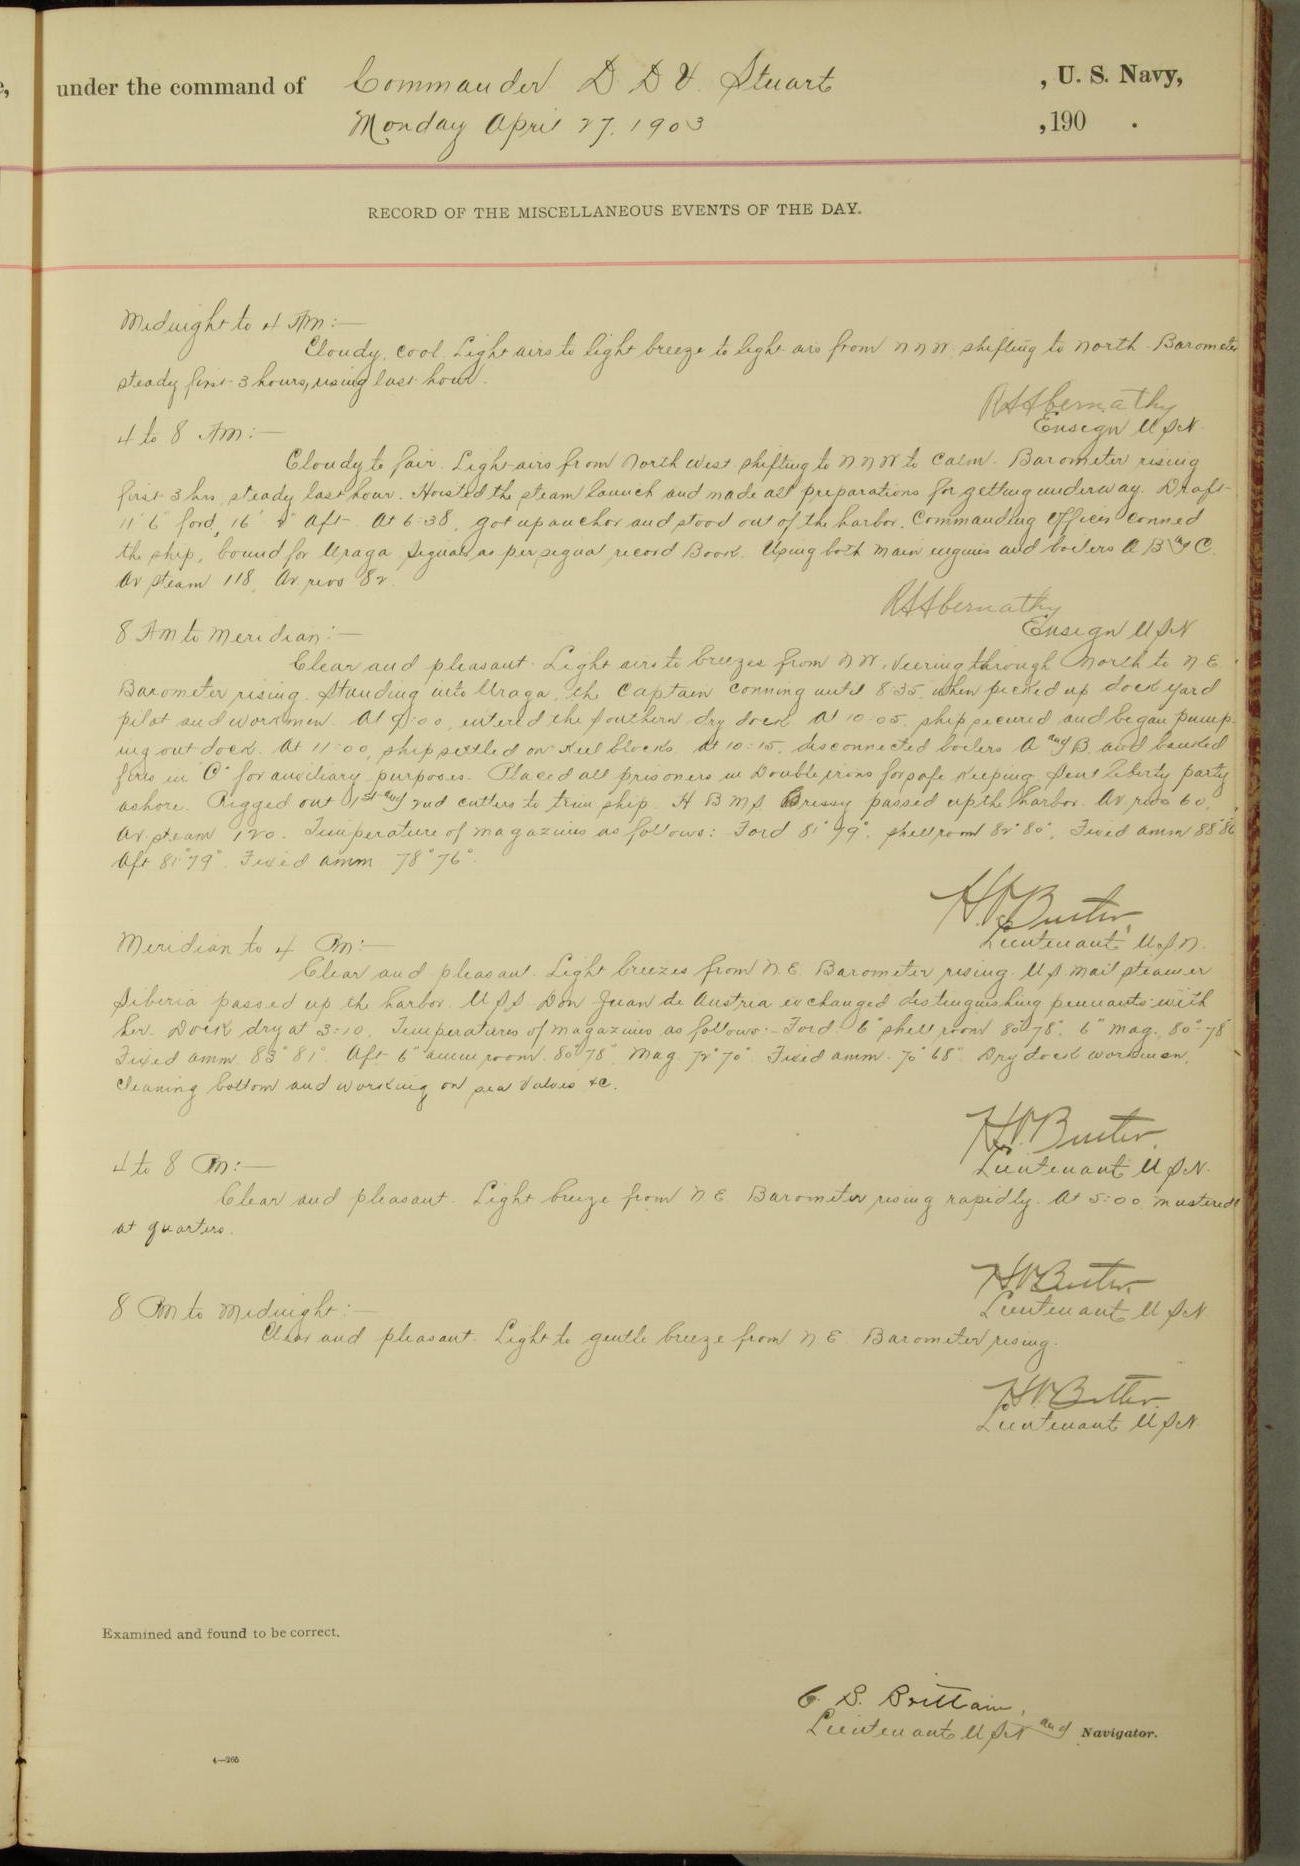 under the command of Commander D D V. Stuart , U. S. Navy,
Monday April 27. 1903 , 190 .
RECORD OF THE MISCELLANEOUS EVENTS OF THE DAY.
Midnight to 4 AM:—
Cloudy, cool. Light airs to light breeze to light airs from NNW. shifting to North. Barometer
steady first 3 hours, rising last hour.
Ensign U S N
4 to 8 AM:—
Cloudy to fair. Light airs from North West shifting to NNW to Calm. Barometer rising
first 3 hrs, steady last hour. Hoisted the steam launch and made all preparations for getting underway. Draft
11' 6" ford, 16' Aft. At 6:38, got up anchor and stood out of the harbor. Commanding Officer conned
the ship, bound for Uraga, signals as per signal record Book. Using both main engines and boilers A B and C.
Av steam 118, Av. revs 82.
R H Abernathy
Ensign U S N
8 AM to Meridian:—
Clear and pleasant. Light airs to breezes from NW, veering through North to N.E.
Barometer rising. Standing into Uraga, the Captain conning until 8:35, when picked up dock yard
pilot and workmen. At 9:00, entered the southern dry dock. At 10:05, ship secured and began pump-
ing out dock. At 11:00, ship settled on keel blocks. At 10:15, disconnected boilers A and B, and banked
fires in "C" for auxiliary purposes. Placed all prisoners in Double irons for safe keeping. Sent liberty party
ashore. Rigged out 1st and 2nd cutters to trim ship. H B M S. Cressy passed up the harbor. Av. revs 60,
Av. steam 120. Temperature of magazines as follows: Ford 81° 79°, shell room 82° 80°, Fixed amm 88° 86
Aft 81° 79°. Fixed amm 78° 76°.
Lieutenant U.S.N.
Meridian to 4 PM:—
Clear and pleasant. Light breezes from N.E. Barometer rising. U S mail steamer
Siberia passed up the harbor. U S S Don Juan de Austria exchanged distinguishing pennants with
her. Dock dry at 3:10. Temperatures of magazines as follows:- Ford. 6" shell room 80° 78°. 6" mag. 80° 78°
Fixed amm. 83° 81°. Aft. 6" amm room. 80° 78°, Mag. 72° 70°. Fixed amm. 70° 68°. Dry dock workmen,
cleaning bottom and working on sea valves &c.
Lieutenant U S N.
4 to 8 PM:—
Clear and pleasant. Light breeze from N E. Barometer rising rapidly. At 5:00 mustered
at quarters.
Lieutenant U S N
8 PM to Midnight:—
Clear and pleasant. Light to gentle breeze from N E. Barometer rising.
Lieutenant U S N
Examined and found to be correct.
C. S. Brittain,
Lieutenant U S N and Navigator.
4—265